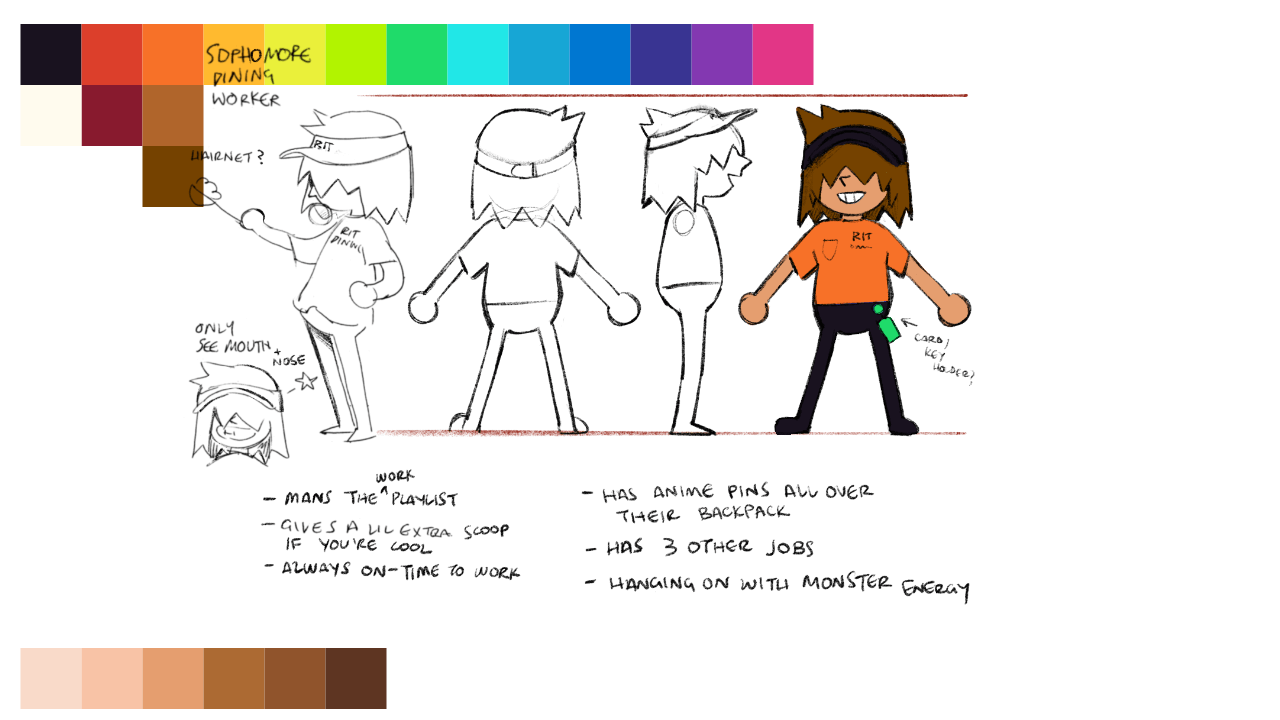 SOPHOMORE
DINING
WORKER
HAIRNET?
RIT
RIT
DINING
RIT
ONLY
SEE MOUTH
+ NOSE
CARD/
KEY
HOLDER?
WORK
- MANS THE ^ PLAYLIST
- GIVES A LIL EXTRA SCOOP
IF YOU'RE COOL
- ALWAYS ON-TIME TO WORK
- HAS ANIME PINS ALL OVER
THEIR BACKPACK
- HAS 3 OTHER JOBS
- HANGING ON WITH MONSTER ENERGY